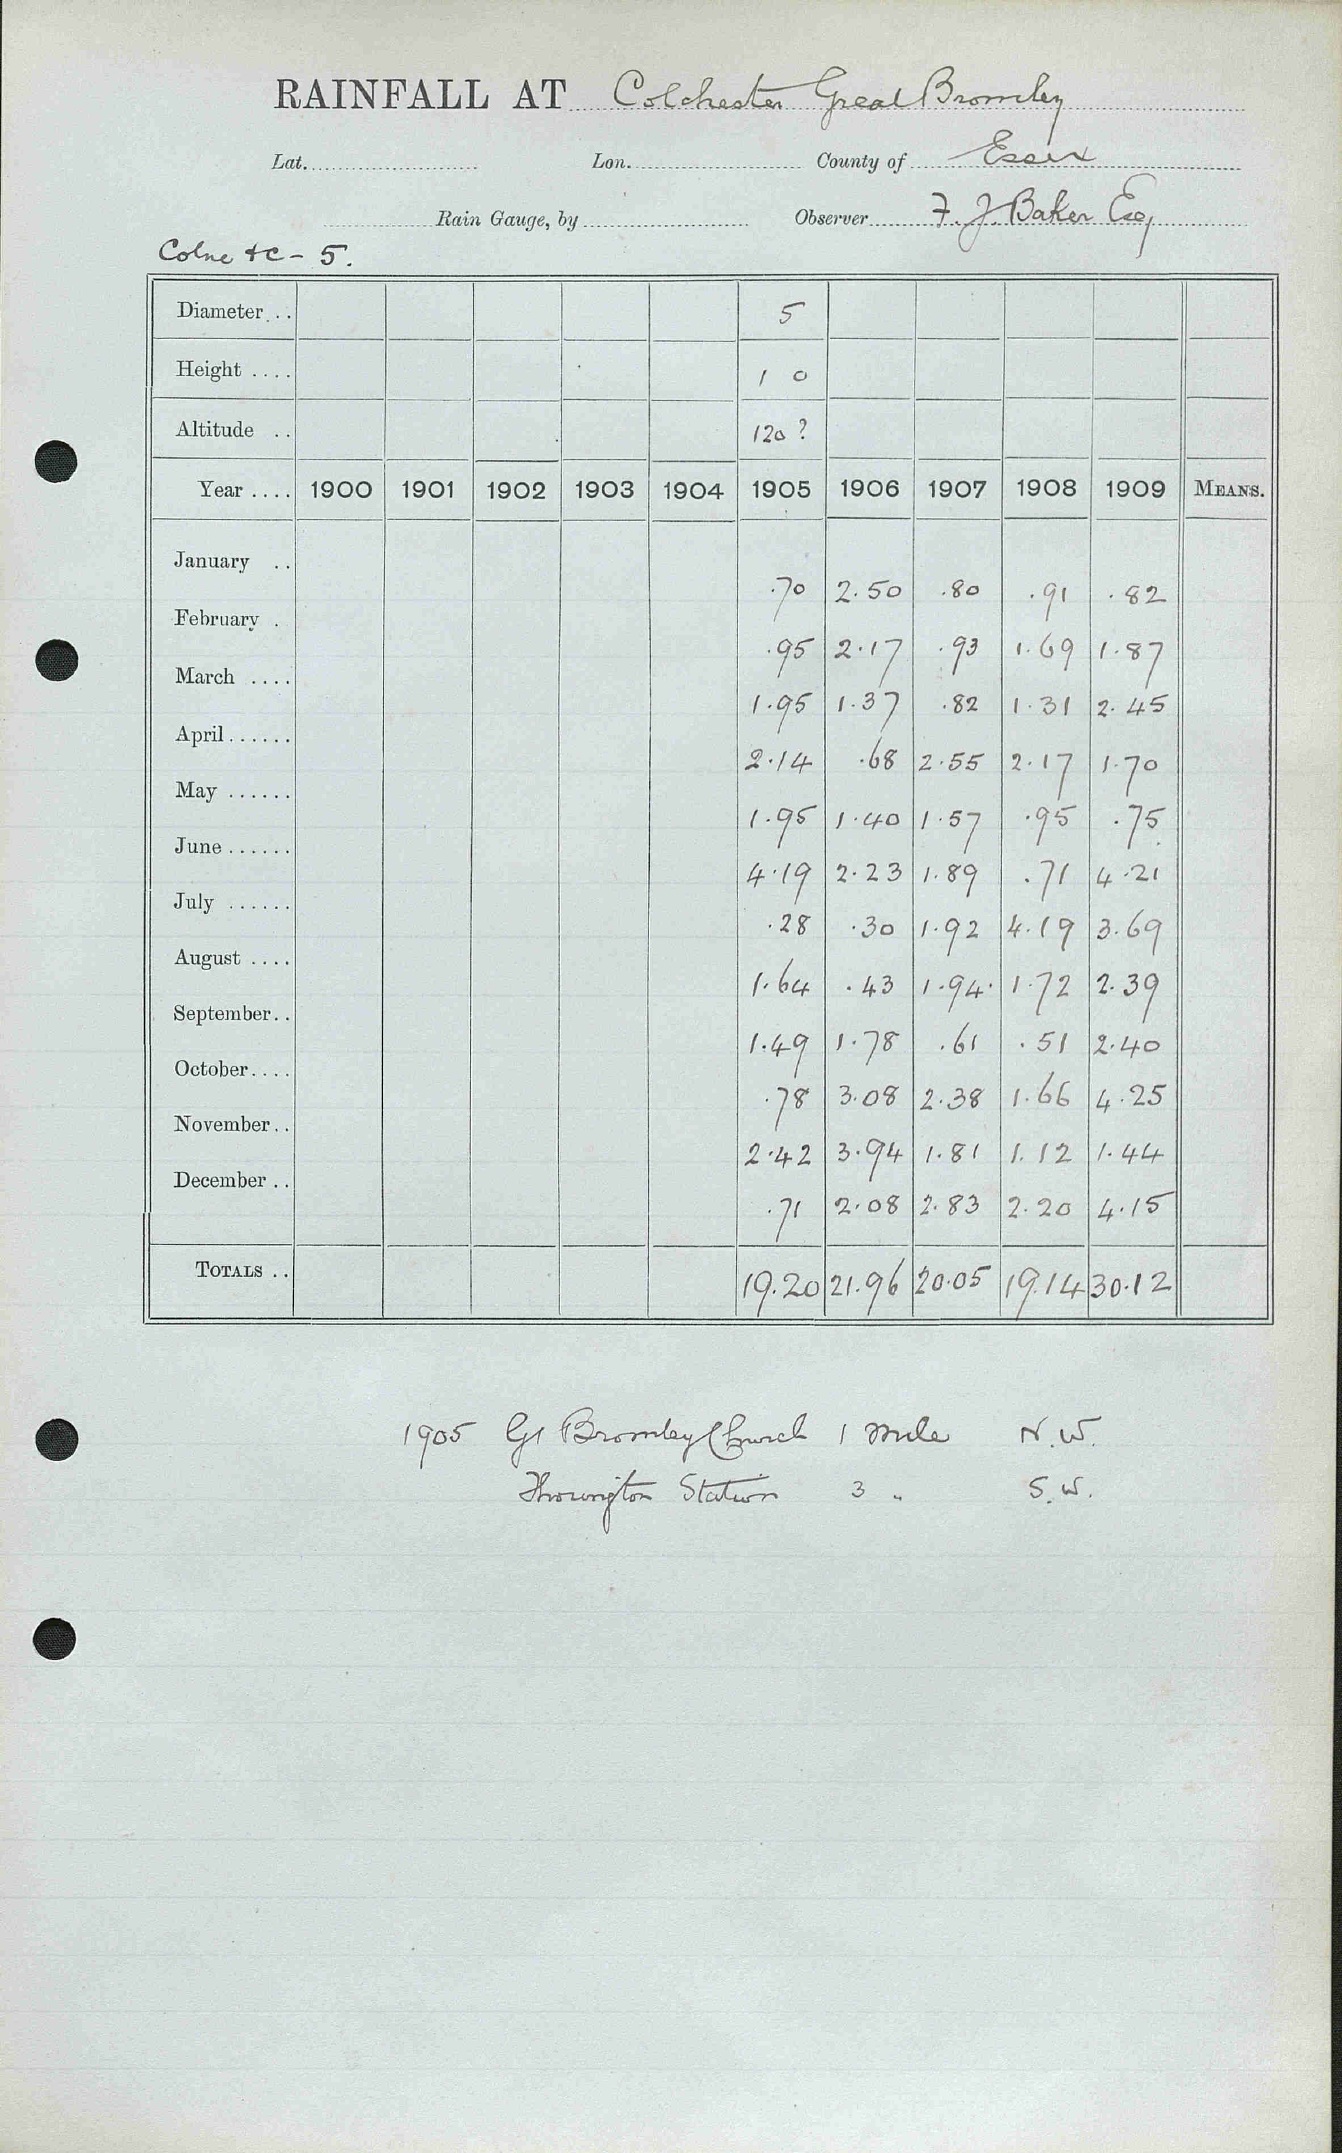 RAINFALL AT Colchester Great Bromley
Lat. Lon. County of Essex
Rain Gauge, by Observer F. J. Baker Esq
Colne &c - 5.
Diameter .. 5
Height .... 1 0
Altitude .. 120 ?
Year .... 1900 1901 1902 1903 1904 1905 1906 1907 1908 1909 MEANS.
January .. .70 2.50 .80 .91 .82
February . .95 2.17 .93 1.69 1.87
March .... 1.95 1.37 .82 1.31 2.45
April ...... 2.14 .68 2.55 2.17 1.70
May ...... 1.95 1.40 1.57 .95 .75
June ...... 4.19 2.23 1.89 .71 4.21
July ...... .28 .30 1.92 4.19 3.69
August .... 1.64 .43 1.94 1.72 2.39
September.. 1.49 1.78 .61 .51 2.40
October.... .78 3.08 2.38 1.66 4.25
November.. 2.42 3.94 1.81 1.12 1.44
December .. .71 2.08 2.83 2.20 4.15
TOTALS .. 19.20 21.96 20.05 19.14 30.12
1905 Gt Bromley Church 1 Mile N.W.
Station 3 " S.W.